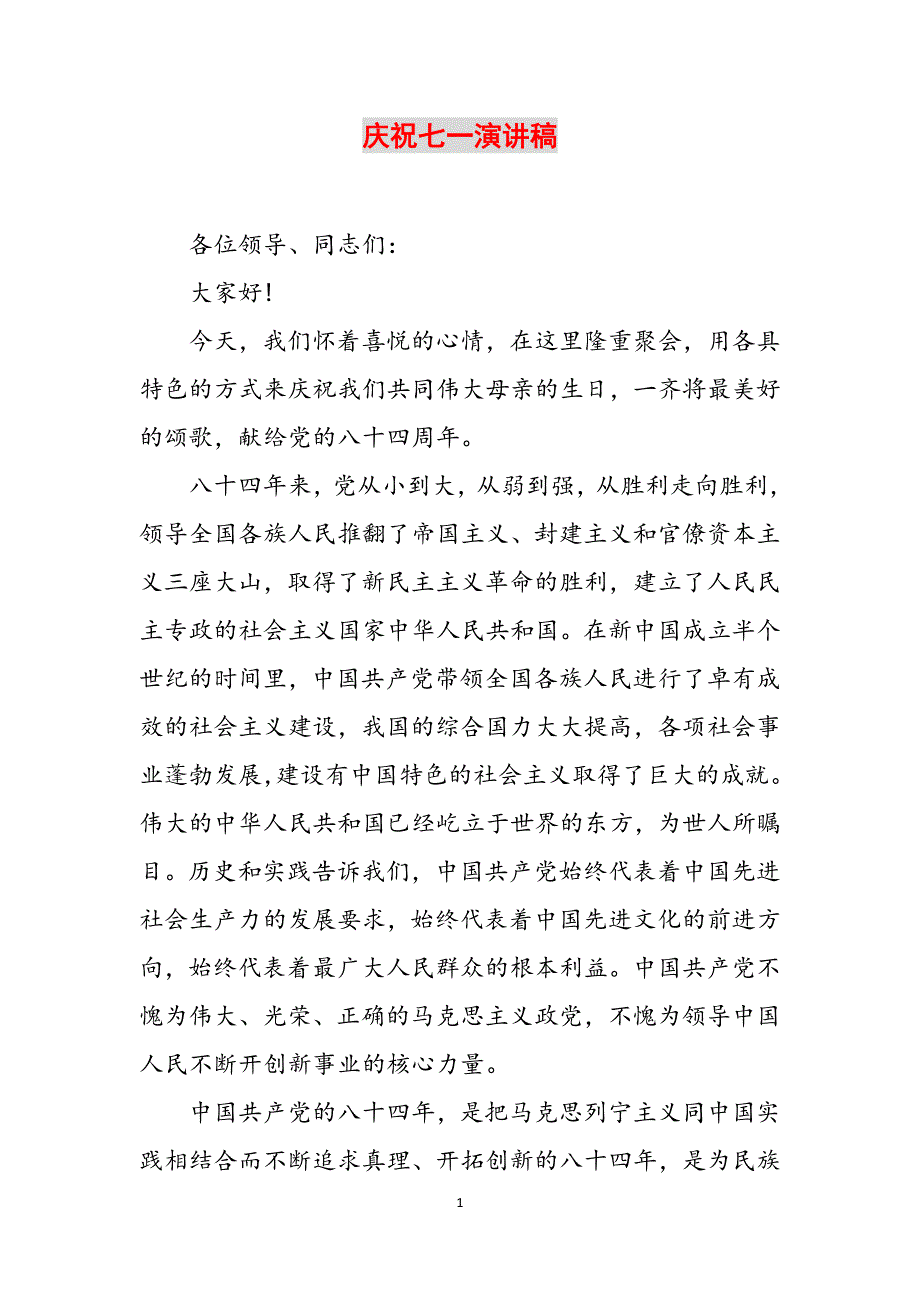 庆祝七一演讲稿
各位领导、同志们：
大家好！
今天，我们怀着喜悦的心情，在这里隆重聚会，用各具
特色的方式来庆祝我们共同伟大母亲的生日，一齐将最美好
的颂歌，献给党的八十四周年。
八十四年来，党从小到大，从弱到强，从胜利走向胜利，
领导全国各族人民推翻了帝国主义、封建主义和官僚资本主
义三座大山，取得了新民主主义革命的胜利，建立了人民民
主专政的社会主义国家中华人民共和国。在新中国成立半个
世纪的时间里，中国共产党带领全国各族人民进行了卓有成
效的社会主义建设，我国的综合国力大大提高，各项社会事
业蓬勃发展，建设有中国特色的社会主义取得了巨大的成就。
伟大的中华人民共和国已经屹立于世界的东方，为世人所瞩
目。历史和实践告诉我们，中国共产党始终代表着中国先进
社会生产力的发展要求，始终代表着中国先进文化的前进方
向，始终代表着最广大人民群众的根本利益。中国共产党不
愧为伟大、光荣、正确的马克思主义政党，不愧为领导中国
人民不断开创新事业的核心力量。
中国共产党的八十四年，是把马克思列宁主义同中国实
践相结合而不断追求真理、开拓创新的八十四年，是为民族
1